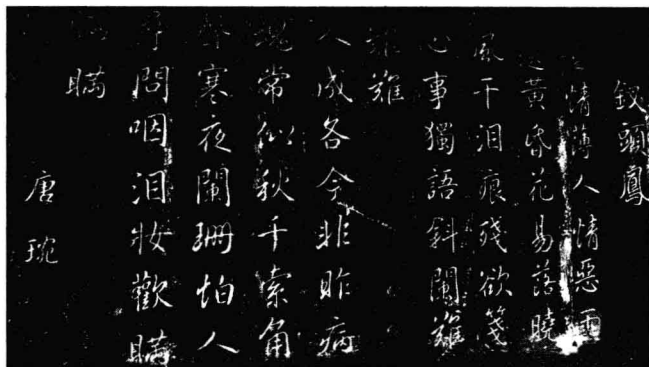 釵頭鳳
世情薄人情惡雨
送黃昏花易落曉
風干泪痕殘欲箋
心事獨語斜闌難
難難
人成各今非昨病
魂常似秋千索角
聲寒夜闌珊怕人
尋問咽泪妝歡瞞
瞞
唐琬